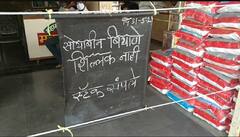 सोयाबीन बियाणे
शिल्लक नाही
स्टॉक संपले